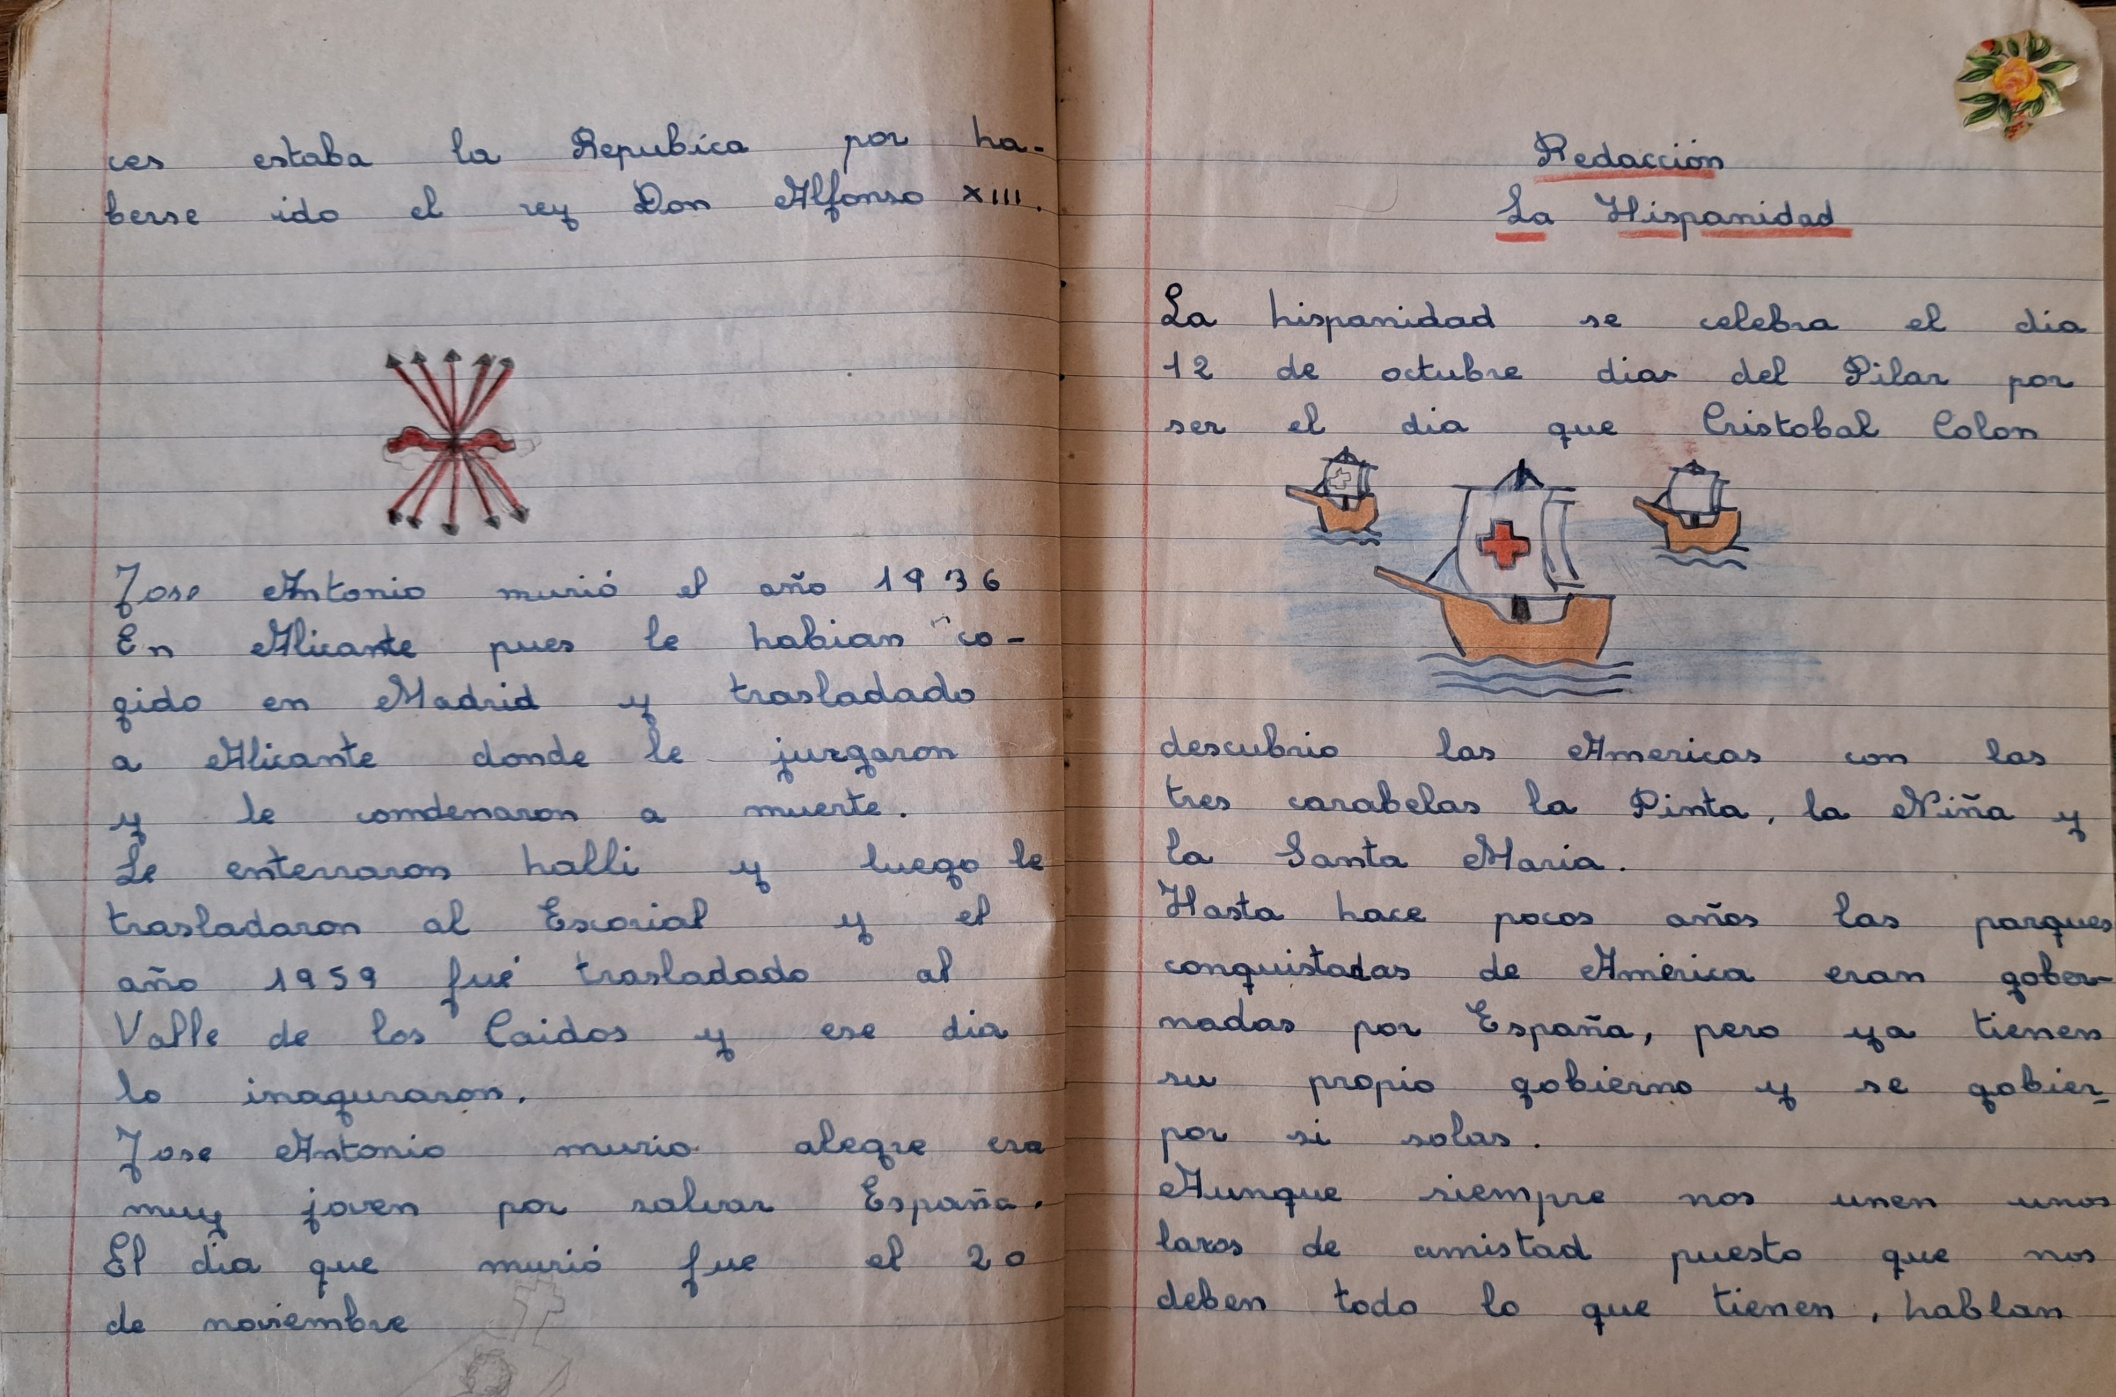 ces estaba la Repubica por ha-
berse ido el rey Don Alfonso XIII.
Jose Antonio murió el año 1936
En Alicante pues le habian co-
gido en Madrid y trasladado
a Alicante donde le jurgaron
y le comdenaron a muerte.
Le enterraron halli y luego le
trasladaron al Escorial y el
año 1959 fué trasladado al
Valle de los Caidos y ese dia
lo inaguraron.
Jose Antonio murio alegre era
muy joven por salvar España.
El dia que murió fue el 20
de noviembre
Redacción
La Hispanidad
La hispanidad se celebra el dia
12 de octubre dias del Pilar por
ser el dia que Cristobal Colon
descubrio las Americas con las
tres carabelas la Pinta, la Niña y
la Santa Maria.
Hasta hace pocos años las parques
conquistadas de América eran gober-
nadas por España, pero ya tienen
su propio gobierno y se gobier-
por si solas.
Aunque siempre nos unen unos
laros de amistad puesto que nos
deben todo lo que tienen, hablan